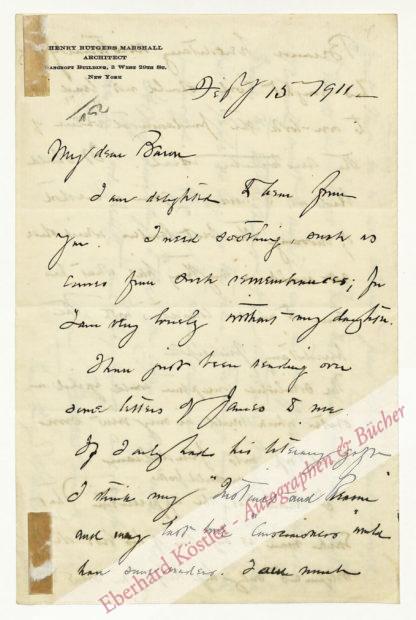 HENRY RUTGERS MARSHALL
ARCHITECT
BANCROFT BUILDING, 3 WEST 29TH ST.
NEW YORK
15 1911
My dear Baron
I am delighted to hear from
you. I need soothing, such as
comes from such remembrances; for
I am very lonely without my daughter.
I have just been reading over
some letters of James to me.
If I only had his literary gift
I think my "Instinct and Reason"
and my last one "Consciousness" would
have some readers. I am much
Eberhard Köstler - Autographen & Bücher